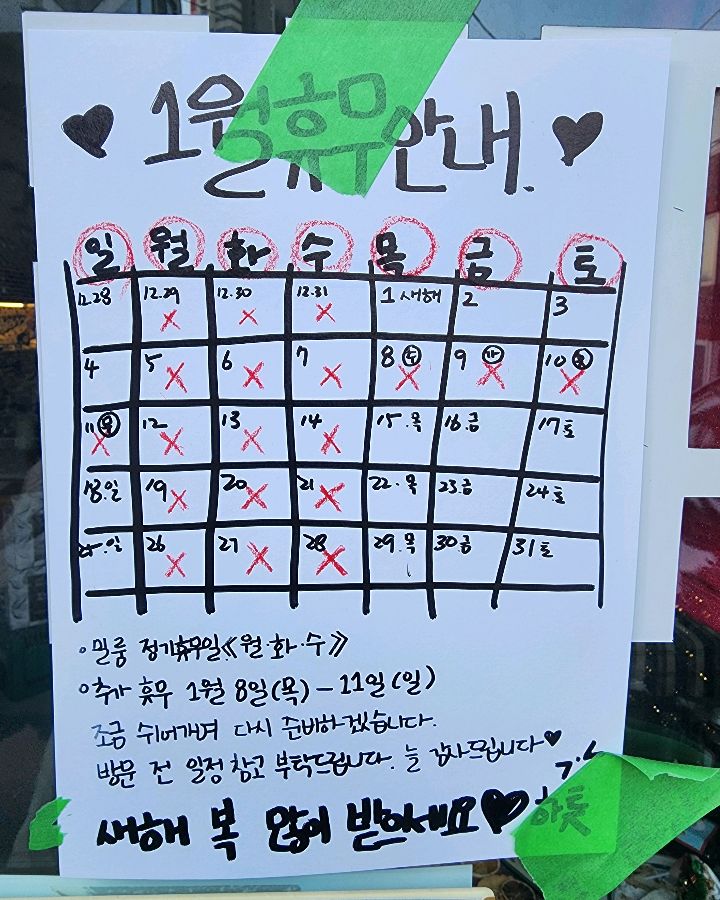 ♥ 1월 휴무 안내. ♥
일 월 화 수 목 금 토
12.28 12.29 X 12.30 X 12.31 X 1 새해 2 3
4 5 X 6 X 7 X 8 X 9 X 10 X
11 X 12 X 13 X 14 X 15.목 16.금 17토
18.일 19 X 20 X 21 X 22.목 23.금 24토
25.일 26 X 27 X 28 X 29.목 30금 31토
정기휴무일《월·화·수》
추가 휴무 1월 8일(목) - 11일(일)
조금 쉬어가며 다시 준비하겠습니다.
방문 전 일정 참고 부탁드립니다. 늘 감사드립니다♥
새해 복 많이 받아세요♥